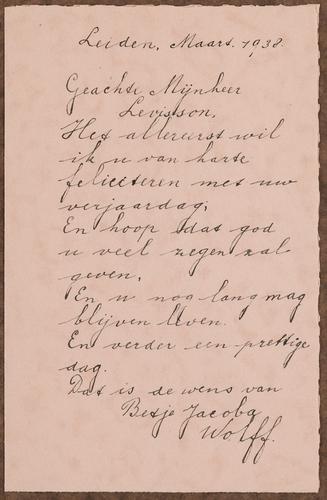 Leiden, Maart. 1938.
Geachte Mijnheer
Levisson,
Het allereerst wil
ik u van harte
feliciteren met uw
verjaardag,
En hoop dat god
u veel zegen zal
geven.
En u nog lang mag
blijven leven.
En verder een prettige
dag.
Dat is de wens van
Betje Jacoba
Wolff.